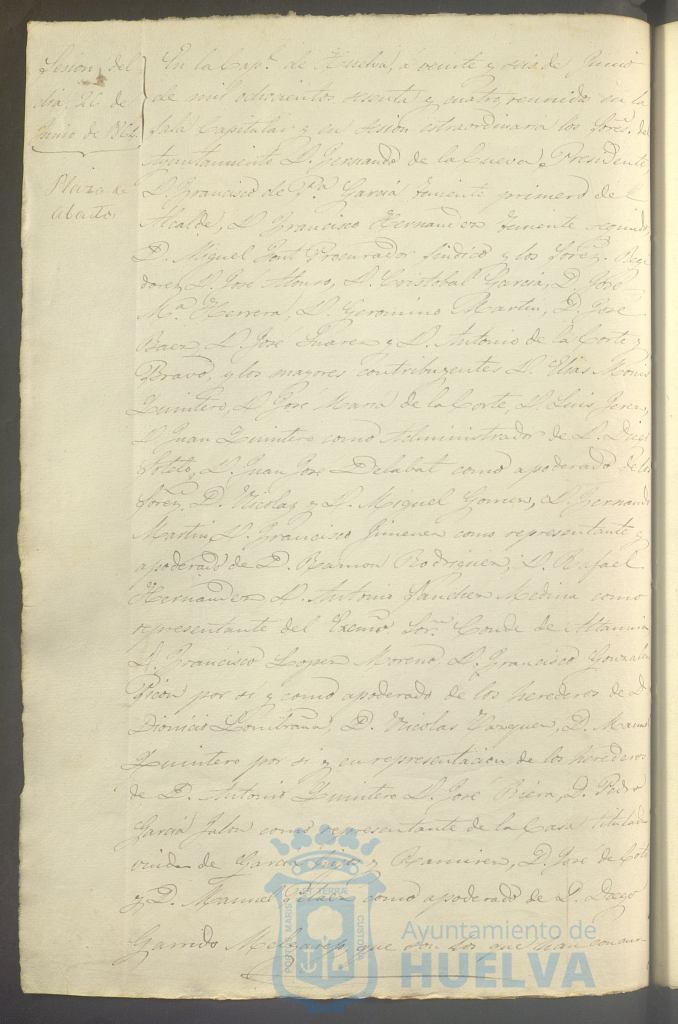 Sesion del
dia 26 de
Junio de 1864.
Plaza de
abasto
En la Cap.l de Huelva, á veinte y seis de Junio
de mil ochocientos sesenta y cuatro, reunidos en la
Sala Capitular y en sesion estraordinaria los Sores. del
Ayuntamiento D. Fernando de la Cueva, Presidente,
D. Francisco de P.la García teniente primero de
Alcalde, D. Francisco Hernandez teniente segundo,
D. Miguel Procurador Sindico y los Sores. Regi
dores D. José Alonso, D. Cristobal Garcia, D. José
M.a Herrera, D. Geronimo Martin, D. José
Baez, D. José Suarez y D. Antonio de la Corte y
Bravo, y los mayores contribuyentes D. Elias
Quintero, D. José Maria de la Corte, D. Luis Jerez,
D. Juan Quintero como Administrador de D. Diego
Soteto, D. Juan José Delabat como apoderado de los
Sores. D. Nicolas y D. Miguel Gomez, D. Fernando
Martin, D. Francisco Jimenez como representante y
apoderado de D. Ramon Rodriguez, D. Rafael
Hernandez D. Antonio Sanchez Medina como
representante del Excmo. Sor. Conde de Altamira
D. Francisco Lopez Moreno. D. Francisco Gonzalez
por si, y como apoderado de los herederos de D.
Dionicio D. Nicolas Vazquez, D. Manuel
Quintero por si y en representacion de los herederos
de D. Antonio Quintero D. José Riera, D. Pedro
Garcia Jalon como representante de la Casa titulada
viuda de Garcia y Ramirez, D. José de
y D. Manuel como apoderado de D. Diego
Garrido Melgarejo, que son los que han concur-
PORTUS MARIS ET TERRAE CUSTODIA
Ayuntamiento de
HUELVA